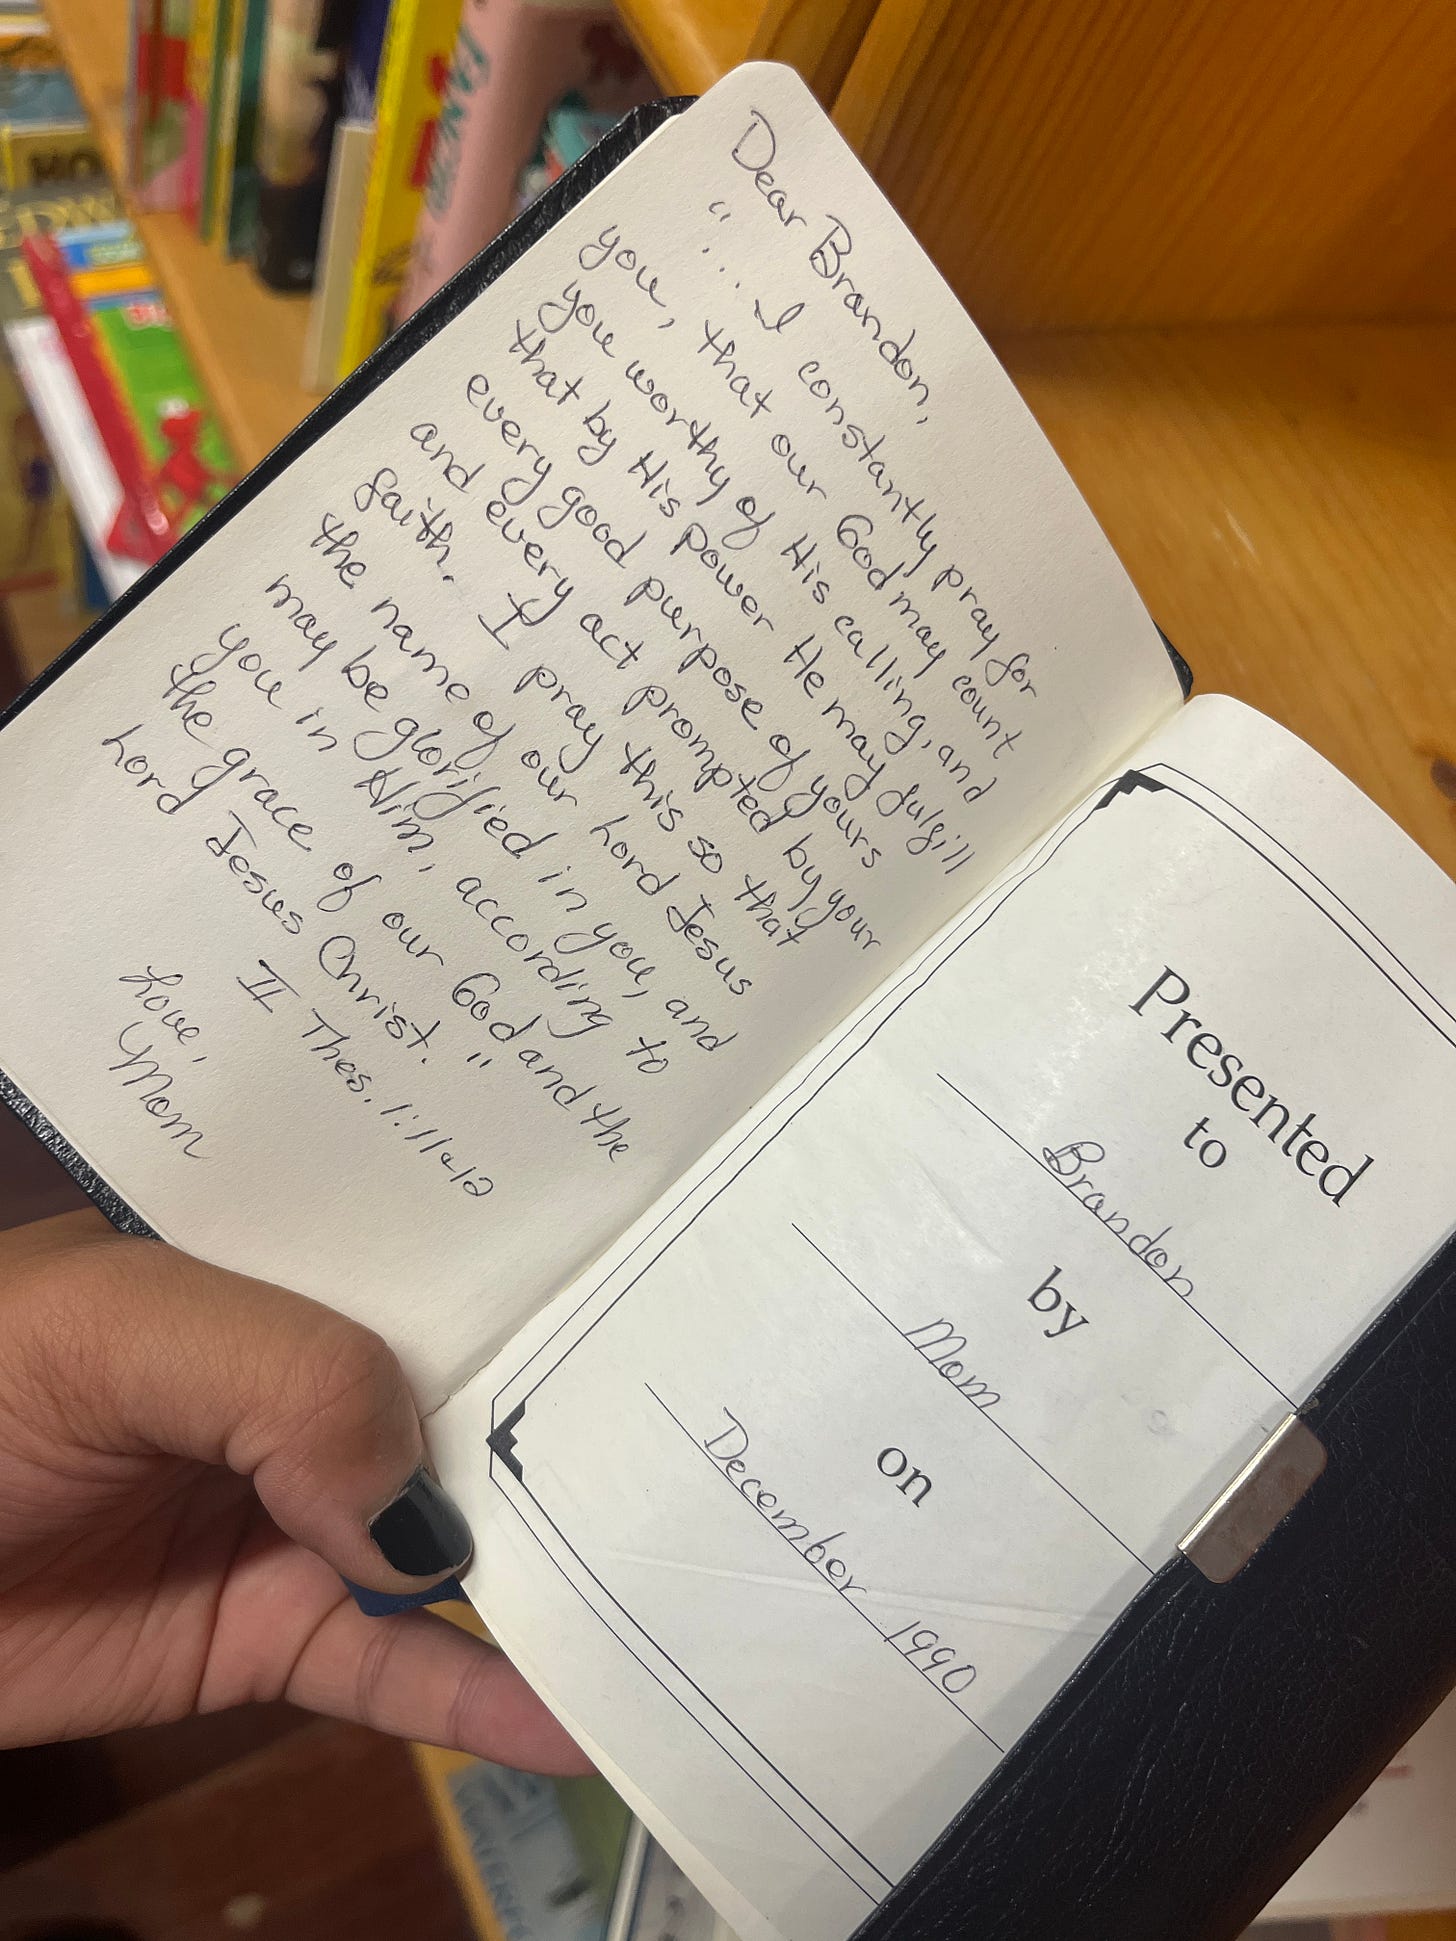 Dear Brandon,
"... I constantly pray for
you, that our God may count
you worthy of His calling, and
that by His power He may fulfill
every good purpose of yours
and every act prompted by your
faith. I pray this so that
the name of our Lord Jesus
may be glorified in you, and
you in Him, according to
the grace of our God and the
Lord Jesus Christ."
II Thes. 1:11&12
Love,
Mom
Presented
to
Brandon
by
Mom
on
December 1990